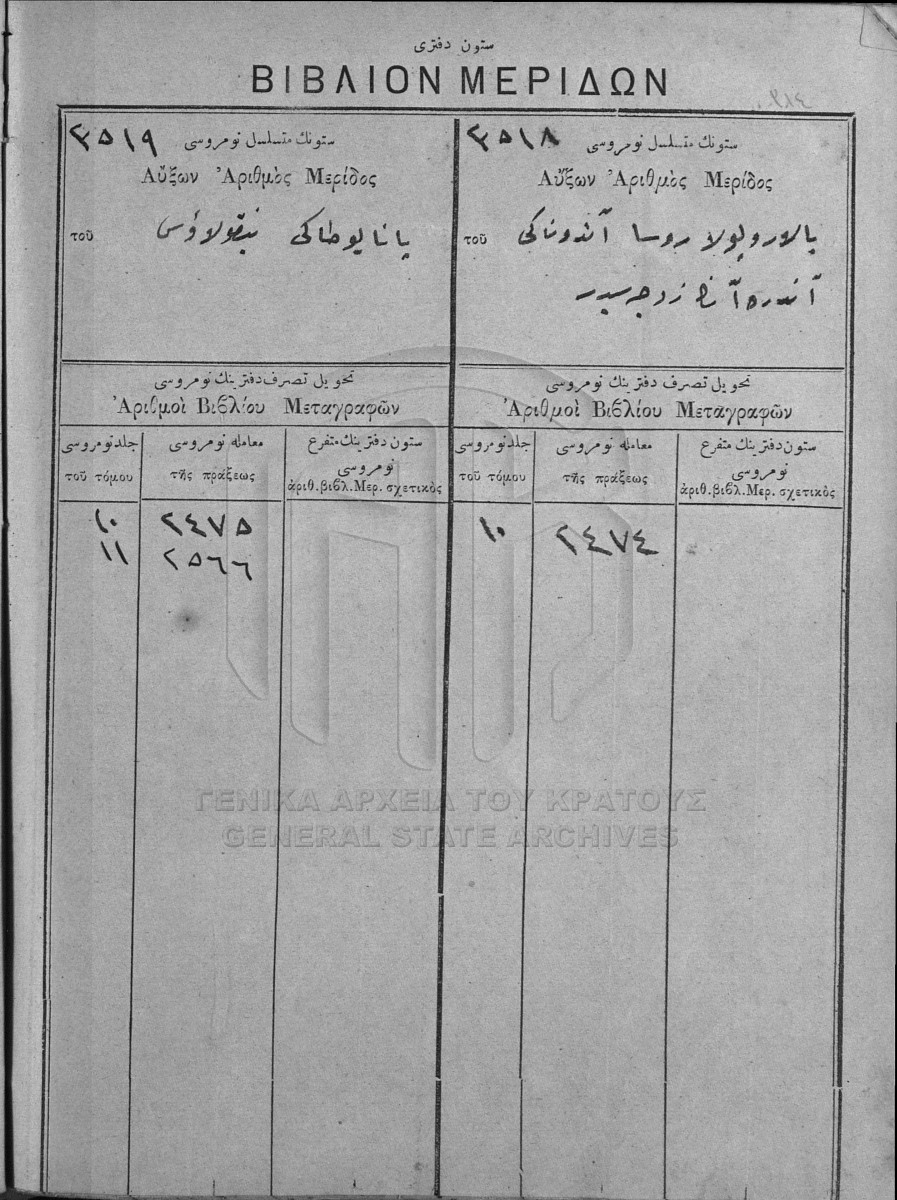 ستون دفتری
ΒΙΒΛΙΟΝ ΜΕΡΙΔΩΝ
ستونك متسلسل نومروسی ٣٥١٨
Αὔξων Ἀριθμὸς Μερίδος
τοῦ
روسا آندوناكی
زوجه سیدر
تحویل تصرف دفترینك نومروسی
Ἀριθμοὶ Βιβλίου Μεταγραφῶν
ستون دفترینك متفرع نومروسی
ἀριθ. βιβλ. Μερ. σχετικὸς
معامله نومروسی
τῆς πράξεως
جلد نومروسی
τοῦ τόμου
٢٤٧٤
١٠
ستونك متسلسل نومروسی ٣٥١٩
Αὔξων Ἀριθμὸς Μερίδος
τοῦ
پانایوطاكی نیقولاؤس
تحویل تصرف دفترینك نومروسی
Ἀριθμοὶ Βιβλίου Μεταγραφῶν
ستون دفترینك متفرع نومروسی
ἀριθ. βιβλ. Μερ. σχετικὸς
معامله نومروسی
τῆς πράξεως
جلد نومروسی
τοῦ τόμου
٢٤٧٥
١٠
٢٥٦٦
١١
ΓΕΝΙΚΑ ΑΡΧΕΙΑ ΤΟΥ ΚΡΑΤΟΥΣ
GENERAL STATE ARCHIVES